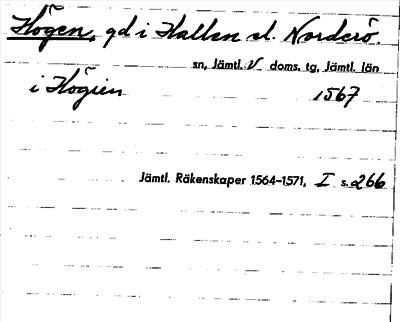 Högen, gd i Hallen el. Norderö.
sn, Jämtl. V doms. tg, Jämtl. län
i Högien 1567
Jämtl. Räkenskaper 1564–1571, I s. 266